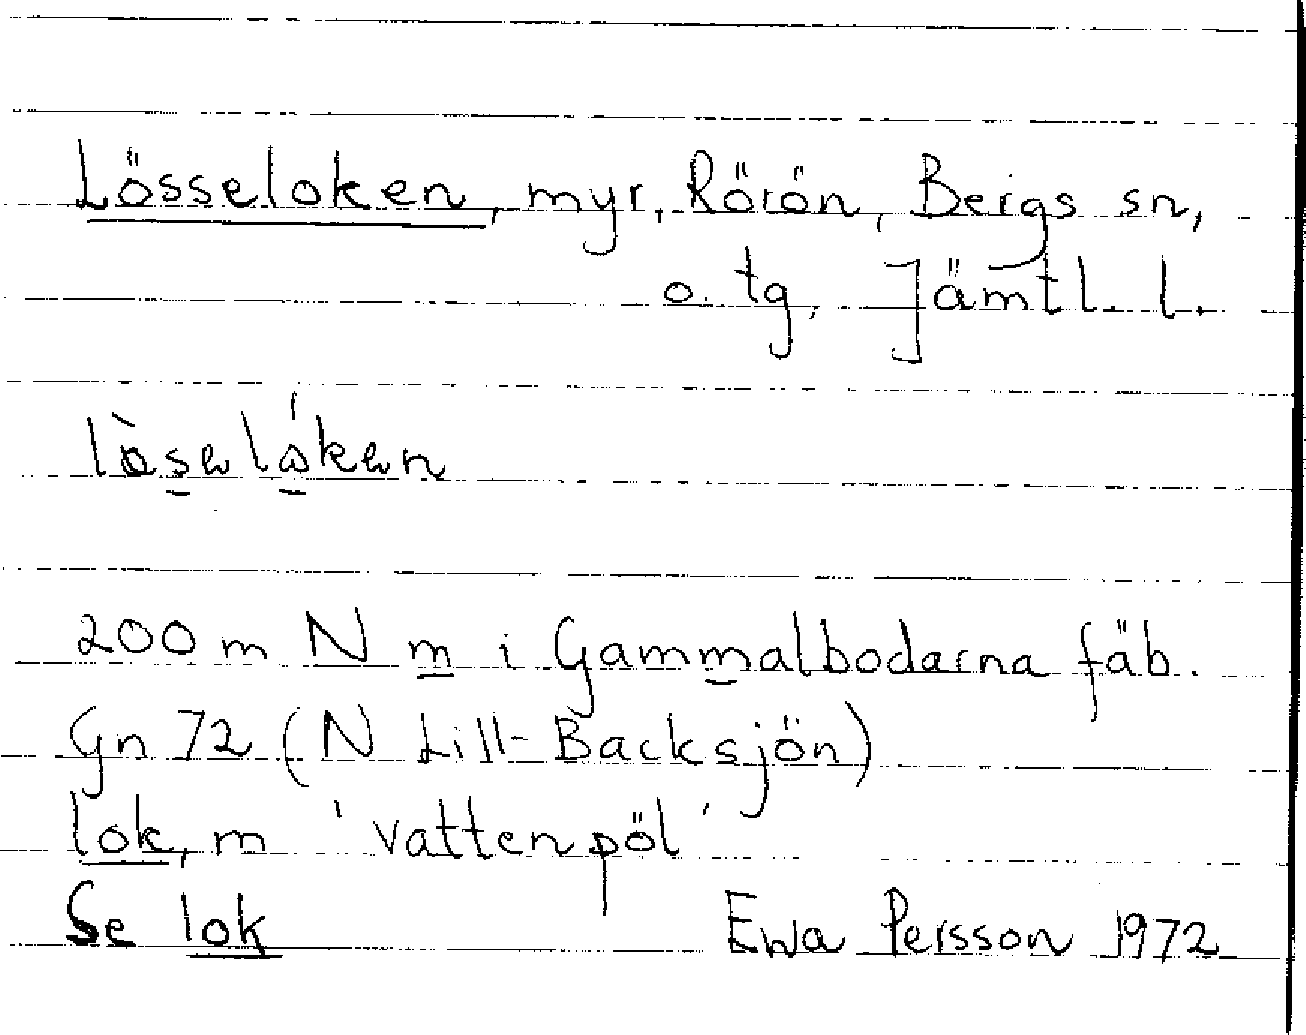 Lösseloken, myr, Rörön, Bergs sn,
o. tg, Jämtl. l.
200 m N m i Gammalbodarna fäb.
Gn 72 (N Lill-Backsjön)
lok, m 'vattenpöl'
Se lok
Ewa Persson 1972